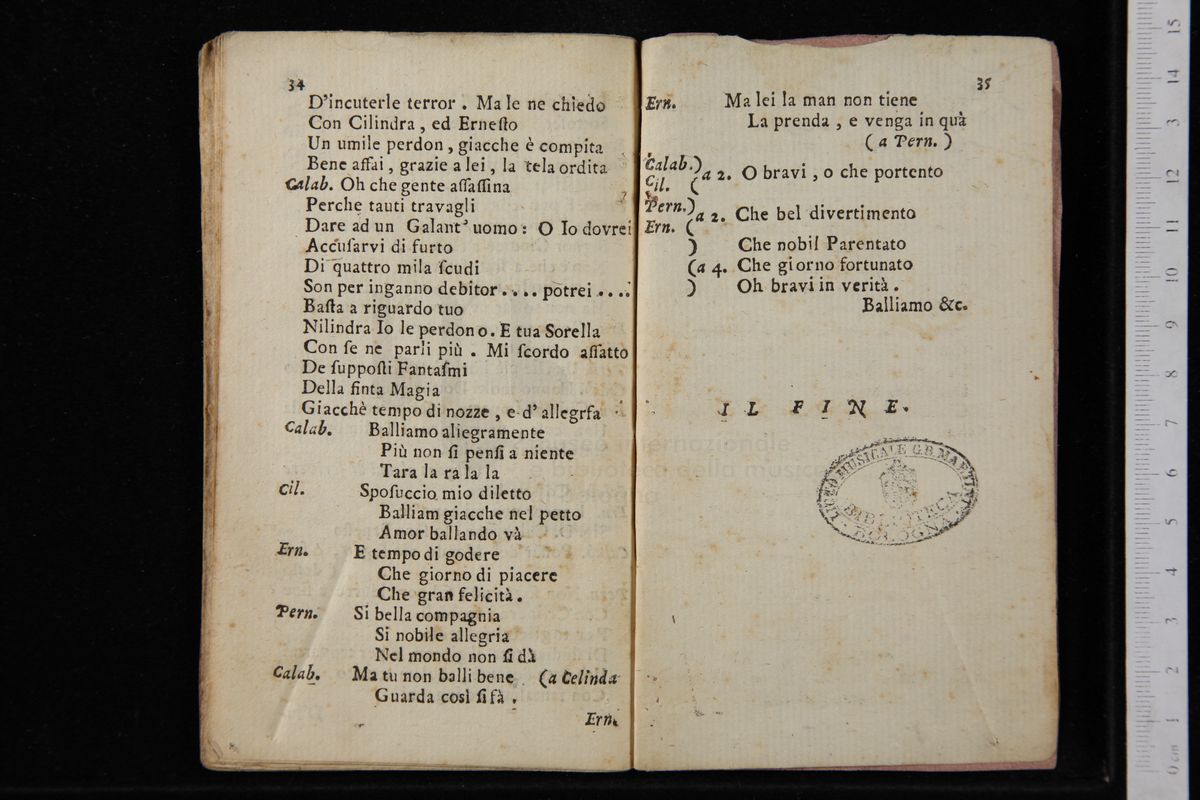 34
D'incuterle terror . Ma le ne chiedo
Con Cilindra , ed Erneſto
Un umile perdon , giacche è compita
Bene aſſai , grazie a lei , la tela ordita
Calab. Oh che gente aſſaſſina
Perche tauti travagli
Dare ad un Galant' uomo : O Io dovrei
Accuſarvi di furto
Di quattro mila ſcudi
Son per inganno debitor .... potrei ....
Baſta a riguardo tuo
Nilindra Io le perdono. E tua Sorella
Con ſe ne parli più . Mi ſcordo affatto
De ſuppoſti Fantaſmi
Della finta Magia
Giacchè tempo di nozze , e d' allegrfa
Calab. Balliamo allegramente
Più non ſi penſi a niente
Tara la ra la la
Cil. Spoſuccio mio diletto
Balliam giacche nel petto
Amor ballando và
Ern. E tempo di godere
Che giorno di piacere
Che gran felicità.
Pern. Si bella compagnia
Si nobile allegria
Nel mondo non ſi dà
Calab. Ma tu non balli bene (a Celinda
Guarda così ſi fà .
Ern.
35
Ern. Ma lei la man non tiene
La prenda , e venga in quà
( a Pern. )
Calab.)
Cil. ( a 2. O bravi , o che portento
Pern.)
Ern. ( a 2. Che bel divertimento
) Che nobil Parentato
(a 4. Che giorno fortunato
) Oh bravi in verità .
Balliamo &c.
IL FINE.
LICEO MUSICALE G.B. MARTINI
BIBLIOTECA
BOLOGNA
museo internazionale
e biblioteca della musica
di bologna
0 cm 1 2 3 4 5 6 7 8 9 10 11 12 13 14 15